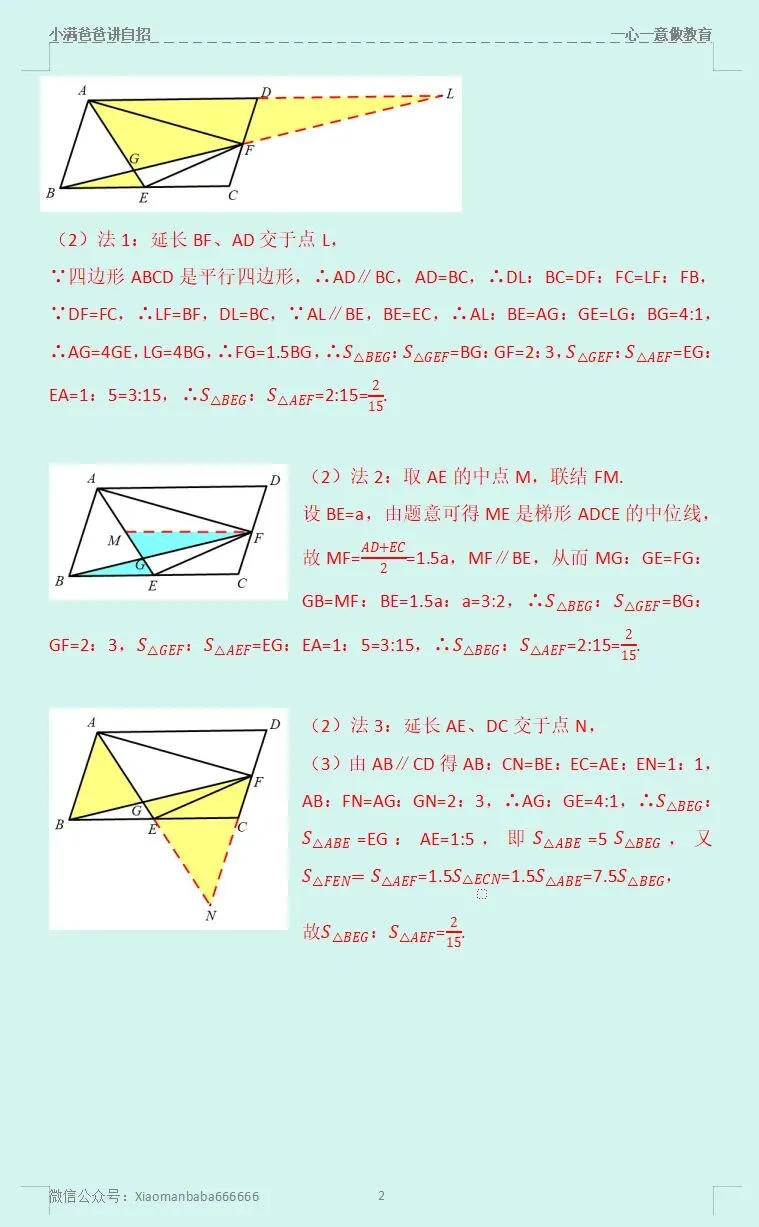 小满爸爸讲自招 一心一意做教育
A D L
G F
B E C
（2）法 1：延长 BF、AD 交于点 L，
∵四边形 ABCD 是平行四边形，∴AD∥BC，AD=BC，∴DL：BC=DF：FC=LF：FB，
∵DF=FC，∴LF=BF，DL=BC，∵AL∥BE，BE=EC，∴AL：BE=AG：GE=LG：BG=4:1，
∴AG=4GE，LG=4BG，∴FG=1.5BG，∴S△BEG：S△GEF=BG：GF=2：3，S△GEF：S△AEF=EG：
EA=1：5=3:15，∴S△BEG：S△AEF=2:15=2/15.
A D
M F
G
B E C
（2）法 2：取 AE 的中点 M，联结 FM.
设 BE=a，由题意可得 ME 是梯形 ADCE 的中位线，
故 MF=(AD+EC)/2=1.5a，MF∥BE，从而 MG：GE=FG：
GB=MF：BE=1.5a：a=3:2，∴S△BEG：S△GEF=BG：
GF=2：3，S△GEF：S△AEF=EG：EA=1：5=3:15，∴S△BEG：S△AEF=2:15=2/15.
A D
F
G
B E C
N
（2）法 3：延长 AE、DC 交于点 N，
（3）由 AB∥CD 得 AB：CN=BE：EC=AE：EN=1：1，
AB：FN=AG：GN=2：3，∴AG：GE=4:1，∴S△BEG：
S△ABE=EG：AE=1:5，即 S△ABE=5S△BEG，又
S△FEN=S△AEF=1.5S△ECN=1.5S△ABE=7.5S△BEG，
故S△BEG：S△AEF=2/15.
微信公众号：Xiaomanbaba666666 2